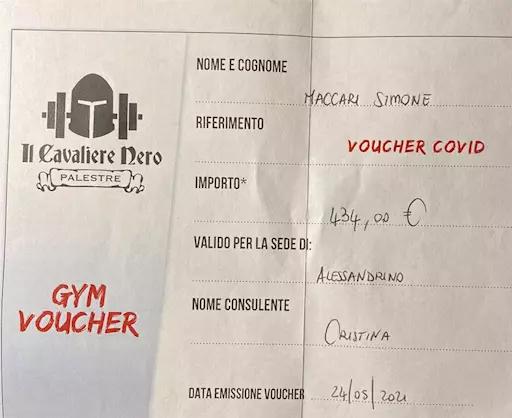 Il Cavaliere Nero
PALESTRE
GYM
VOUCHER
NOME E COGNOME
MACCARI SIMONE
RIFERIMENTO
VOUCHER COVID
IMPORTO*
434,00 €
VALIDO PER LA SEDE DI:
ALESSANDRINO
NOME CONSULENTE
CRISTINA
DATA EMISSIONE VOUCHER
24/05/2021